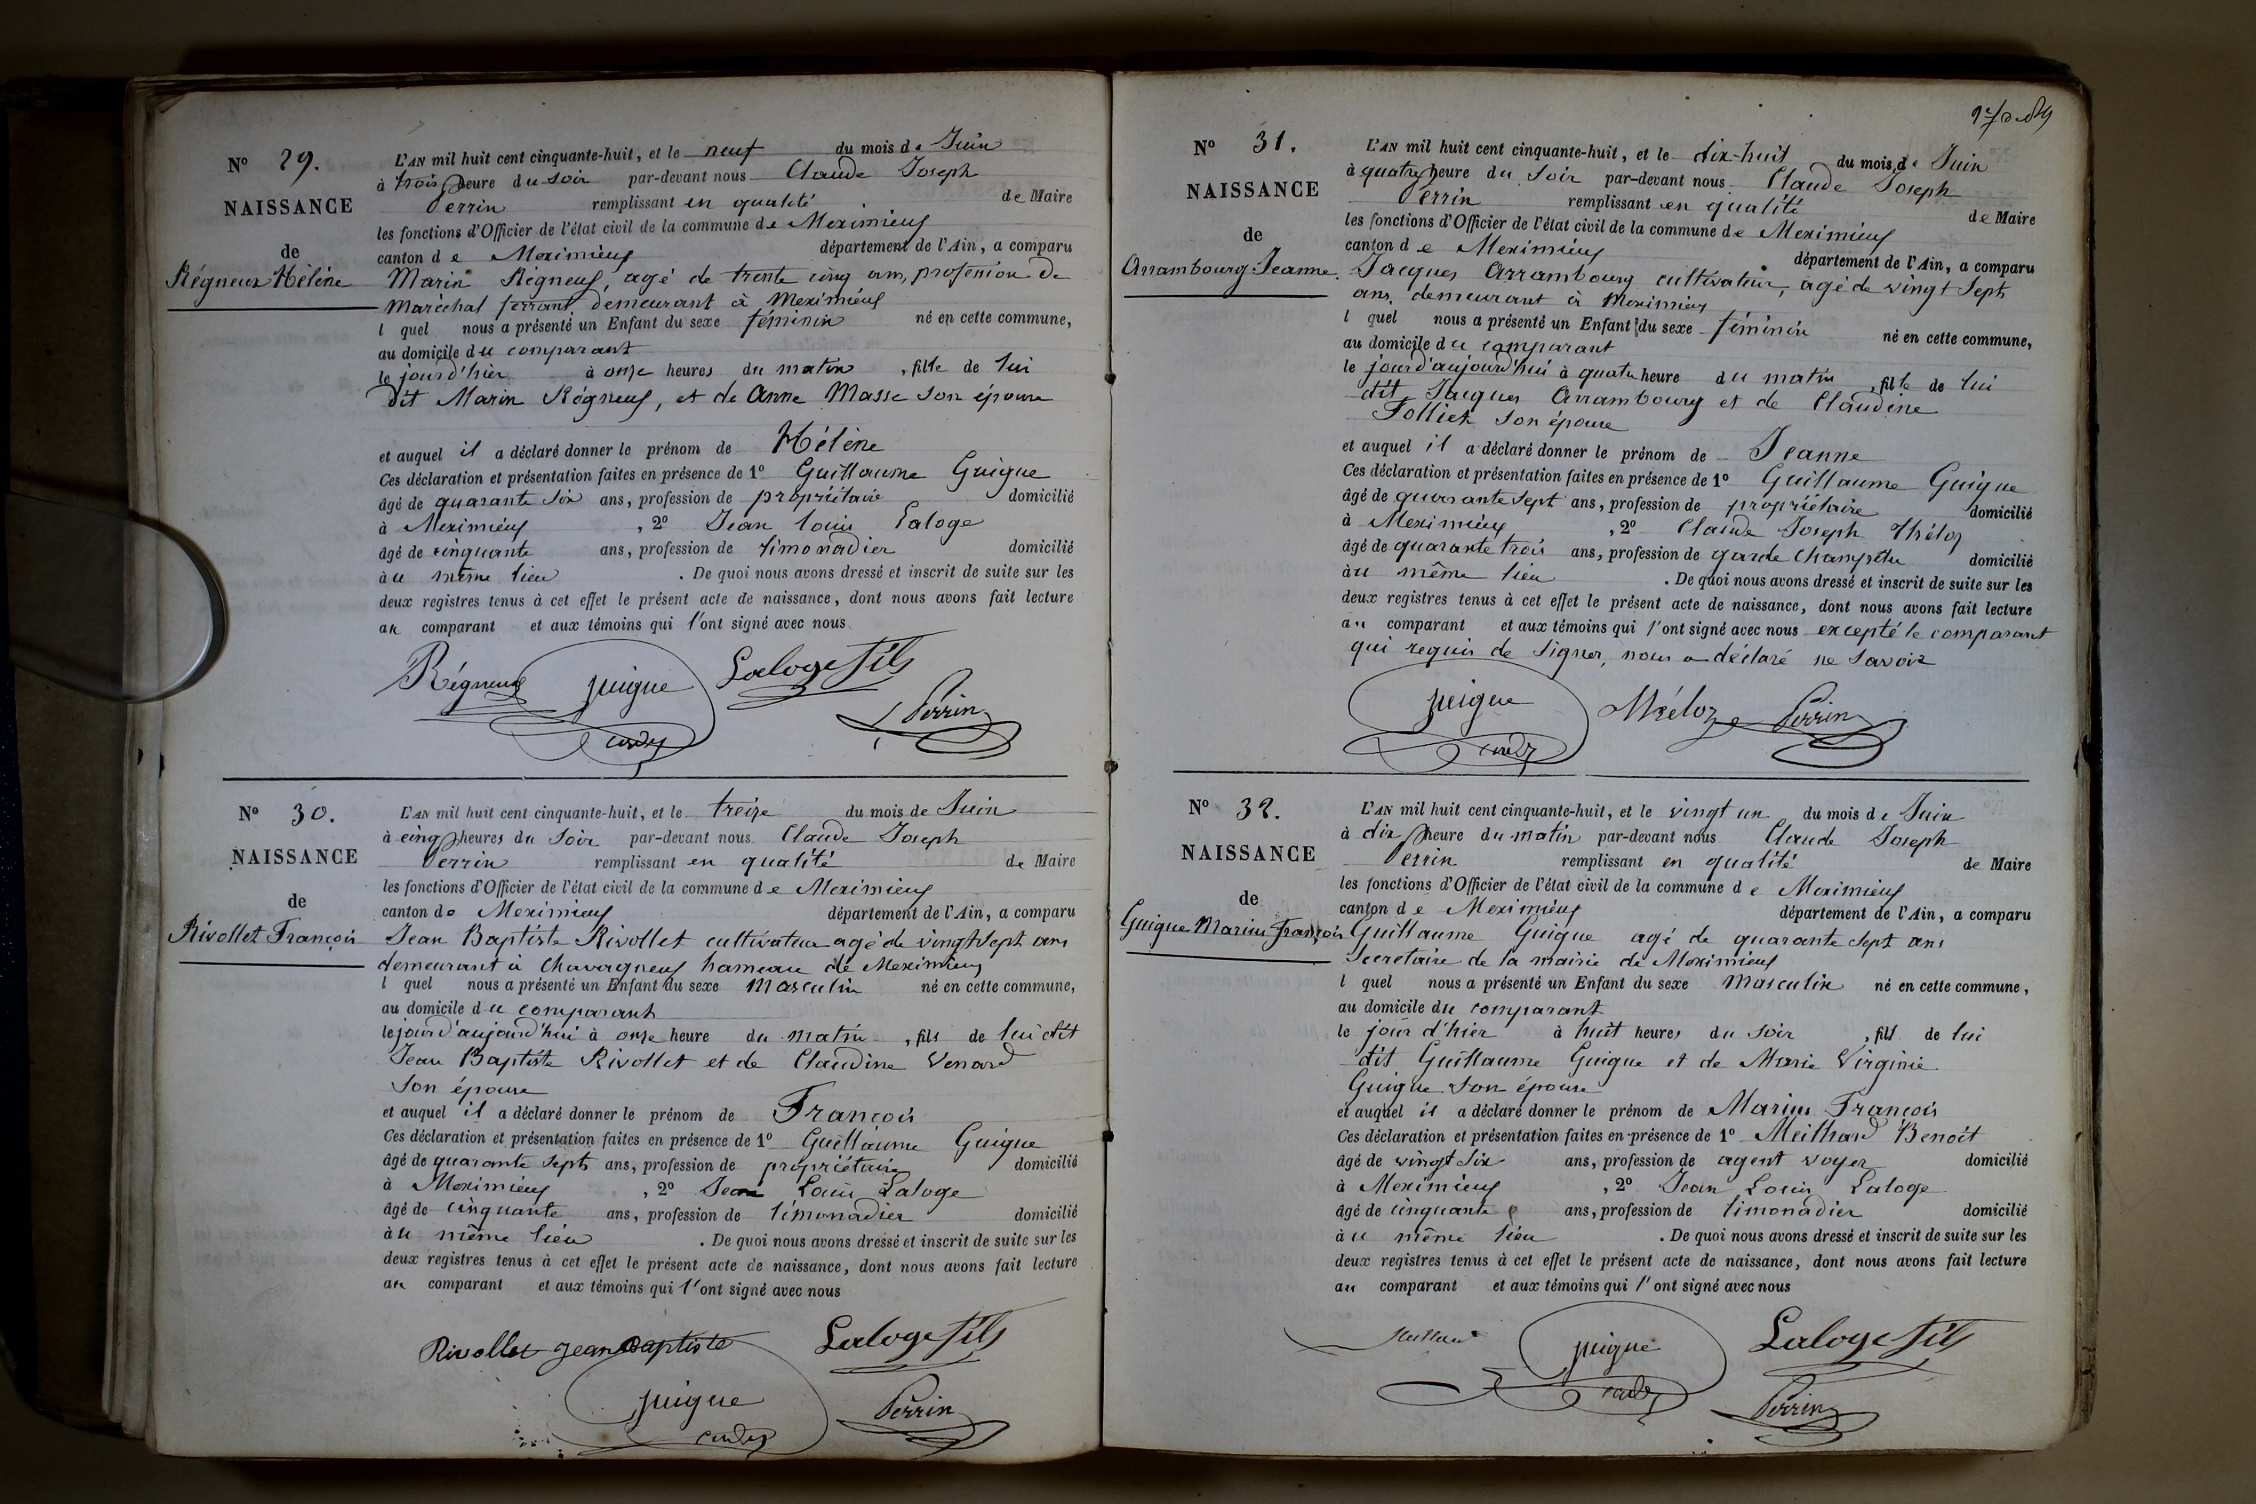 N° 29.
NAISSANCE
de
Régneux Hélène
L'AN mil huit cent cinquante-huit, et le neuf du mois de Juin
à trois heure du soir par-devant nous Claude Joseph
Perrin remplissant en qualité de Maire
les fonctions d'Officier de l'état civil de la commune de Meximieux
canton de Meximieux département de l'Ain, a comparu
Marin Régneux, agé de trente cinq ans, profession de
Maréchal ferrant, demeurant à Meximieux
l quel nous a présenté un Enfant du sexe féminin né en cette commune,
au domicile du comparant
le jour d'hier à onze heures du matin, fille de lui
dit Marin Régneux, et de Anne Masse son épouse
et auquel il a déclaré donner le prénom de Hélène
Ces déclaration et présentation faites en présence de 1° Guillaume Guigue
âgé de quarante six ans, profession de propriétaire domicilié
à Meximieux, 2° Jean Louis Laloge
âgé de cinquante ans, profession de limonadier domicilié
au même lieu. De quoi nous avons dressé et inscrit de suite sur les
deux registres tenus à cet effet le présent acte de naissance, dont nous avons fait lecture
au comparant et aux témoins qui l'ont signé avec nous
Régneux guigue Laloge fils
Perrin
N° 30.
NAISSANCE
de
Rivollet François
L'AN mil huit cent cinquante-huit, et le treize du mois de Juin
à cinq heures du soir par-devant nous Claude Joseph
Perrin remplissant en qualité de Maire
les fonctions d'Officier de l'état civil de la commune de Meximieux
canton de Meximieux département de l'Ain, a comparu
Jean Baptiste Rivollet cultivateur agé de vingt sept ans
demeurant à Chavagneux hameau de Meximieux
l quel nous a présenté un Enfant du sexe Masculin né en cette commune,
au domicile du comparant
le jour d'aujourd'hui à onze heure du matin, fils de lui dit
Jean Baptiste Rivollet et de Claudine Venard
son épouse
et auquel il a déclaré donner le prénom de François
Ces déclaration et présentation faites en présence de 1° Guillaume Guigue
âgé de quarante sept ans, profession de propriétaire domicilié
à Meximieux, 2° Jean Louis Laloge
âgé de cinquante ans, profession de limonadier domicilié
au même lieu. De quoi nous avons dressé et inscrit de suite sur les
deux registres tenus à cet effet le présent acte de naissance, dont nous avons fait lecture
au comparant et aux témoins qui l'ont signé avec nous
Rivollet Jean Baptiste Laloge fils
guigue Perrin
N° 31.
NAISSANCE
de
Arrambourg Jeanne.
L'AN mil huit cent cinquante-huit, et le dix-huit du mois de Juin
à quatre heure du soir par-devant nous Claude Joseph
Perrin remplissant en qualité de Maire
les fonctions d'Officier de l'état civil de la commune de Meximieux
canton de Meximieux département de l'Ain, a comparu
Jacques Arrambourg cultivateur, agé de vingt sept
ans, demeurant à Meximieux
l quel nous a présenté un Enfant du sexe féminin né en cette commune,
au domicile du comparant
le jour d'aujourd'hui à quatre heure du matin, fille de lui
dit Jacques Arrambourg et de Claudine
Folliet son épouse
et auquel il a déclaré donner le prénom de Jeanne
Ces déclaration et présentation faites en présence de 1° Guillaume Guigue
âgé de quarante sept ans, profession de propriétaire domicilié
à Meximieux, 2° Claude Joseph
âgé de quarante trois ans, profession de garde champêtre domicilié
au même lieu. De quoi nous avons dressé et inscrit de suite sur les
deux registres tenus à cet effet le présent acte de naissance, dont nous avons fait lecture
au comparant et aux témoins qui l'ont signé avec nous excepté le comparant
qui requis de signer, nous a déclaré ne savoir
guigue Perrin
N° 32.
NAISSANCE
de
Guigue Marius François
L'AN mil huit cent cinquante-huit, et le vingt un du mois de Juin
à dix heure du matin par-devant nous Claude Joseph
Perrin remplissant en qualité de Maire
les fonctions d'Officier de l'état civil de la commune de Meximieux
canton de Meximieux département de l'Ain, a comparu
Guillaume Guigue agé de quarante sept ans
Secretaire de la mairie de Meximieux
l quel nous a présenté un Enfant du sexe Masculin né en cette commune,
au domicile du comparant
le jour d'hier à huit heures du soir, fils de lui
dit Guillaume Guigue et de Marie Virginie
Guigue son épouse
et auquel il a déclaré donner le prénom de Marius François
Ces déclaration et présentation faites en présence de 1° Meilhard Benoit
âgé de vingt six ans, profession de agent voyer domicilié
à Meximieux, 2° Jean Louis Laloge
âgé de cinquante ans, profession de limonadier domicilié
au même lieu. De quoi nous avons dressé et inscrit de suite sur les
deux registres tenus à cet effet le présent acte de naissance, dont nous avons fait lecture
au comparant et aux témoins qui l'ont signé avec nous
guigue Laloge fils
Perrin